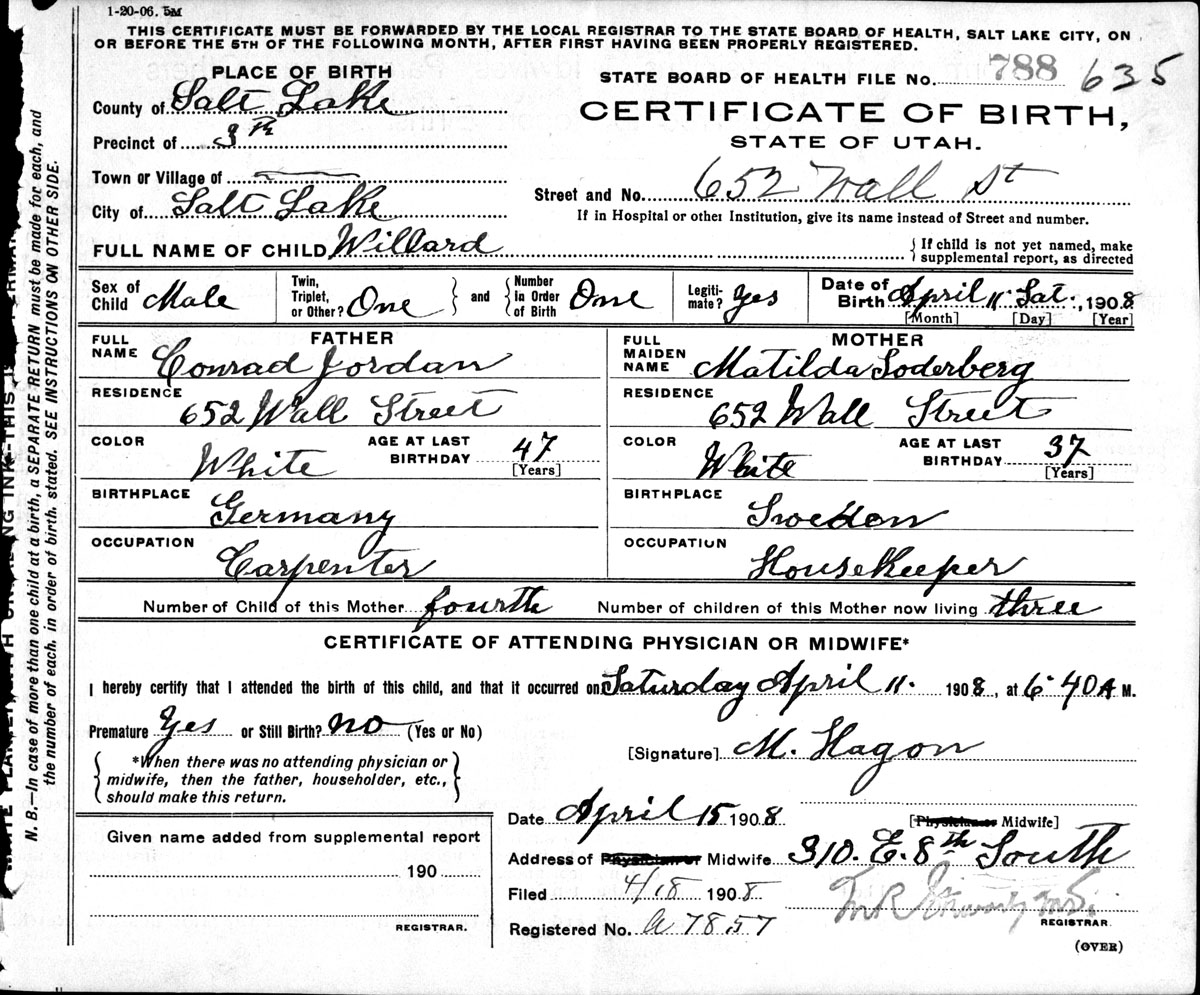 1-20-06. 5M
THIS CERTIFICATE MUST BE FORWARDED BY THE LOCAL REGISTRAR TO THE STATE BOARD OF HEALTH, SALT LAKE CITY, ON
OR BEFORE THE 5TH OF THE FOLLOWING MONTH, AFTER FIRST HAVING BEEN PROPERLY REGISTERED.
PLACE OF BIRTH
STATE BOARD OF HEALTH FILE No. 788 635
County of Salt Lake
CERTIFICATE OF BIRTH,
Precinct of 3rd
STATE OF UTAH.
Town or Village of
Street and No. 652 Wall St
City of Salt Lake
If in Hospital or other Institution, give its name instead of Street and number.
FULL NAME OF CHILD Willard
{ If child is not yet named, make
supplemental report, as directed
Sex of Child Male
Twin, Triplet, or Other? One } and { Number in Order of Birth One
Legiti-mate? Yes
Date of Birth April 11 Sat., 1908
[Month] [Day] [Year]
FATHER
FULL NAME Conrad Jordan
RESIDENCE 652 Wall Street
COLOR White AGE AT LAST BIRTHDAY 47 [Years]
BIRTHPLACE Germany
OCCUPATION Carpenter
MOTHER
FULL MAIDEN NAME Matilda Soderberg
RESIDENCE 652 Wall Street
COLOR White AGE AT LAST BIRTHDAY 37 [Years]
BIRTHPLACE Sweden
OCCUPATION Housekeeper
Number of Child of this Mother fourth Number of children of this Mother now living three
CERTIFICATE OF ATTENDING PHYSICIAN OR MIDWIFE*
I hereby certify that I attended the birth of this child, and that it occurred on Saturday April 11. 1908, at 6·40 A M.
Premature Yes or Still Birth? no (Yes or No)
[Signature] M. Hagon
{ *When there was no attending physician or
midwife, then the father, householder, etc.,
should make this return. }
Date April 15 1908
[Physician or Midwife]
Address of Physician or Midwife 310. E. 8th South
Given name added from supplemental report
190
REGISTRAR.
Filed 4/18 1908
REGISTRAR
Registered No. a 7857
(OVER)
N. B.—In case of more than one child at a birth, a SEPARATE RETURN must be made for each, and
the number of each, in order of birth, stated. SEE INSTRUCTIONS ON OTHER SIDE.